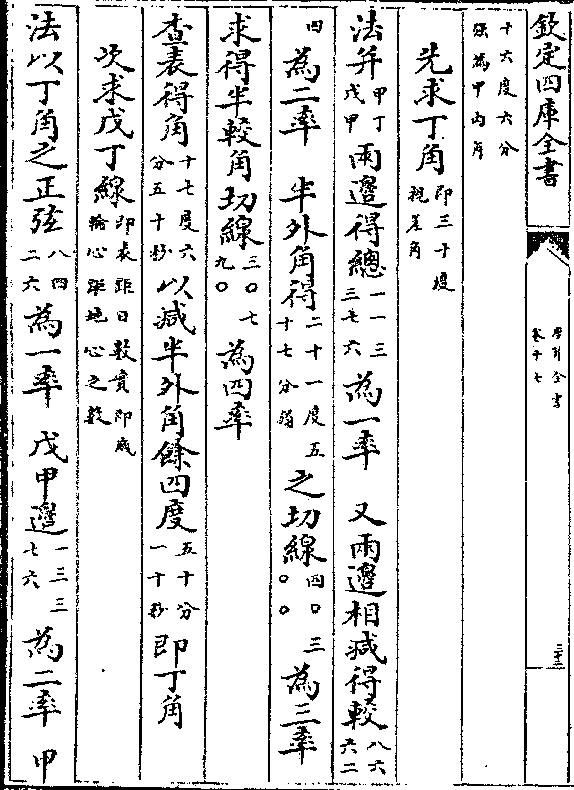 欽定四庫全書
曆算全書
卷十七
三十二
十六度六分
强為甲丙角
先求丁角即三十度視差角
法并甲丁戊甲兩邊得總一一三三七六為一率 又兩邊相減得較八六六二
四為二率 半外角得二十一度五十七分弱之切線四〇三〇〇為三率
求得半較角切線三〇七九〇為四率
查表得角十七度六分五十秒以減半外角餘四度五十分一十秒即丁角
次求戊丁線即表距日數實即歲輪心距地心之數
法以丁角之正弦八四二六為一率 戊甲邊一三三七六為二率 甲